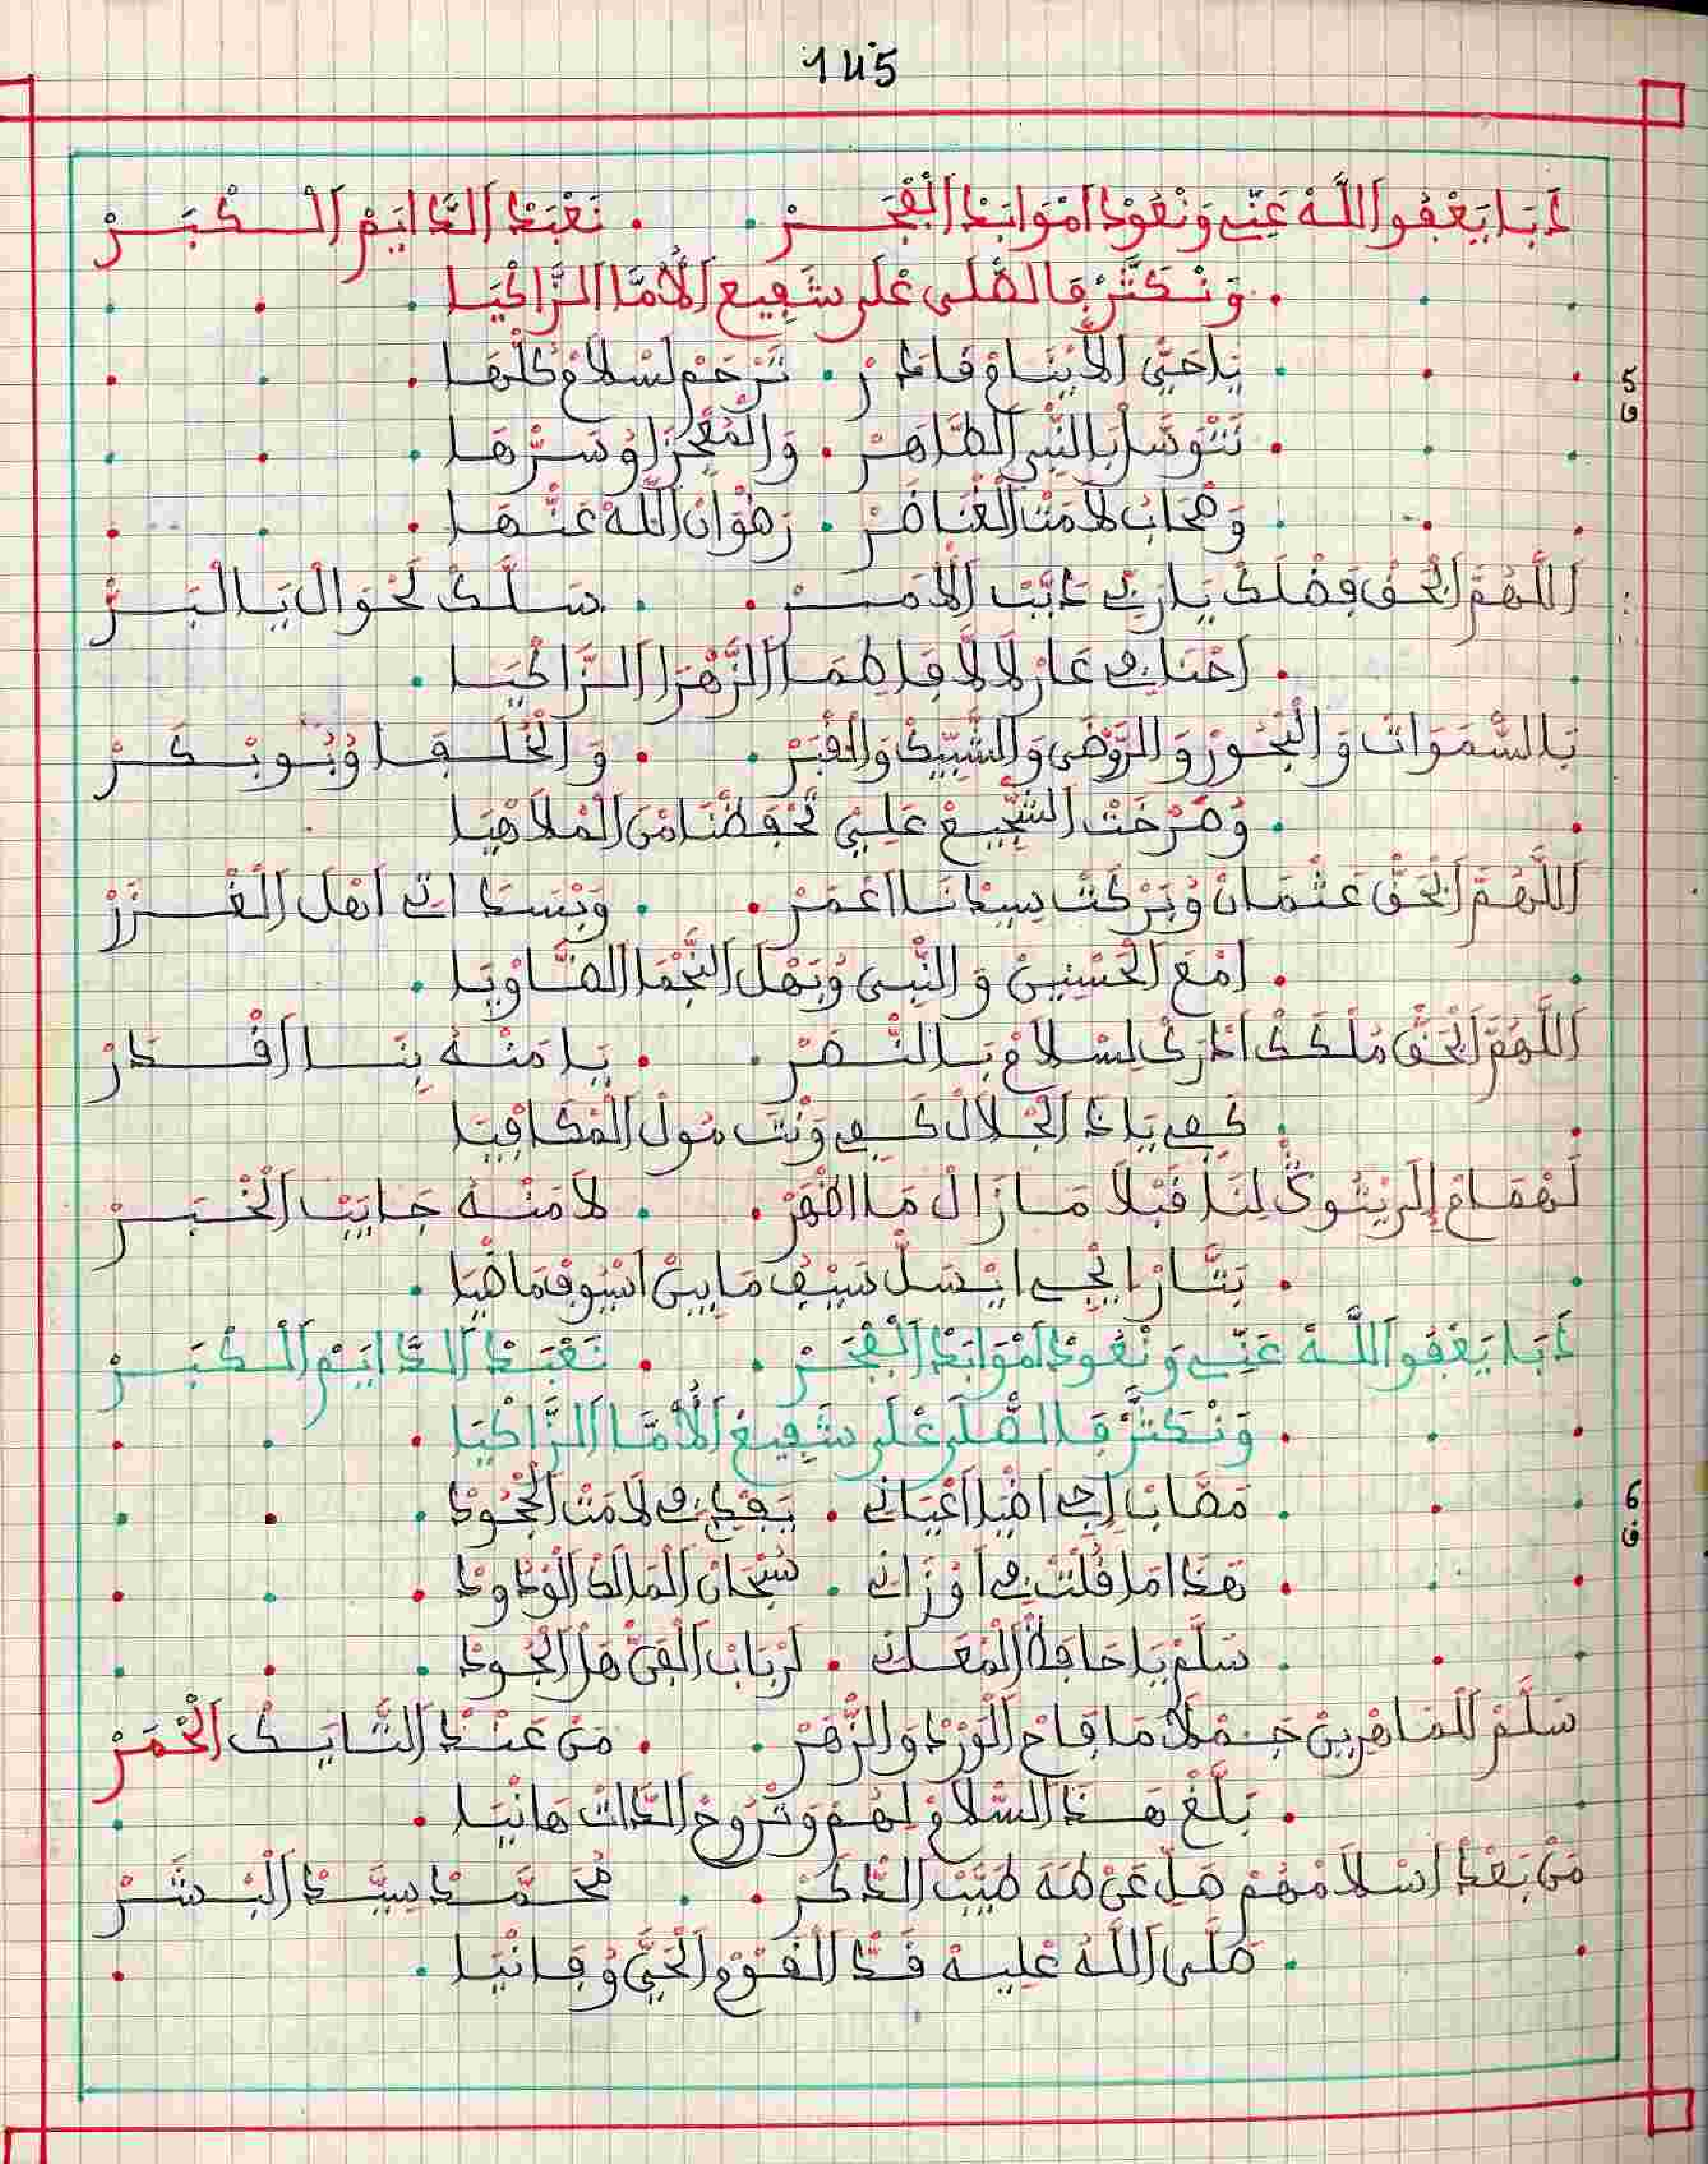 145
دَبَا يَعْفُو اللَّهْ عَنِّي وَنْعُودْ امْوَابَدْ الْفْجَرْ . نَعْبَدْ الدَّايَمْ الْكْبَرْ
وَنْكَثَّرْ فَالصّْلَى عْلَى شَفِيعْ الْأُمَّا الزَّاكْيَا
5 ق
يَاحَيّْ الَا يْنَامْ قَادَرْ . تَرْحَمْ لَسْلَامْ كُلّْهَا
نَتْوَسَّلْ بَالنّْبِي الطَّاهَرْ . وَالْمُعْجِزَا وُسَرّْهَا
وَصْحَابْ لَامَتْ الْغْنَاضَرْ . رَضْوَانْ اللَّهْ عَنْهَا
اللَّهُمَّ ابْحَقْ فَضْلَكْ يَارَبِّي دَايَتْ الَامَرْ . سَلَّكْ لَحْوَالْ يَا الْبَرّْ
احْنَا فِي عَارْ لَالَّا فَاطِمَا الزَّهْرَا الزَّاكْيَا
بَالسَّمَوَاتْ وَالْبْحُورْ وَالرَّوْضَى وَالشّْبِيكْ وَالْقْبَرْ . وَالْخُلَفَا وُبُوبْكَرْ
وُصَرْخَتْ الشّْجِيعْ عَلِيّْ تَحْفَظْنَا مْنْ الْمْلَاهْيَا
اللَّهُمَّ ابْحَقّْ عَثْمَانْ وُبَرْكَتْ سِيدْنَا اعْمَرْ . وَبْسَدَاتِي اهْلْ الْغْزَرْ
امْعَ الْحَسْنِينْ وَالنّْبِي وُبَهْلْ النَّجْمَا الضَّاوْيَا
اللَّهُمَّ ابْحَقّْ مُلْكَكْ ادَّرَكْ لَسْلَامْ بَالنّْصَرْ . يَا مَنْهُ بِنَا اقْدَرْ
كَفِي يَادَ الْجْلَالْ كَفِي وَنْتَ مُولْ الْمْكَافِيَا
لَهْمَامْ إِلَى يْتُوكْ لِنَا قَبْلَا مَازَالْ مَا اظْهَرْ . لَامَنْهُ جَايَبْ الْخْبَرْ
بَتَّارْ ايْجِي ايْسَلّْ سَيْفْ مَابِينْ اسْيُوفْ مَاضْيَا
دَبَا يَعْفُو اللَّهْ عَنِّي وَنْعُودْ امْوَابَدْ الْفْجَرْ . نَعْبَدْ الدَّايَمْ الْكْبَرْ
وَنْكَثَّرْ فَالصّْلَى عْلَى شَفِيعْ الْأُمَّا الزَّاكْيَا
6 ق
مَصَّابْ إِجِي اضْيَا اعْيَانِي . يَفْدِينِي لَامَتْ الْجْحُودْ
هَذَا مَا قُلْتْ فِي اوْزَانِي . سُبْحَانْ الْمَالَكْ الْوْدُودْ
سَلَّمْ يَا حَافَظْ الْمْعَانِي . لَرْبَابْ الْفَنّْ هَلْ الْجُودْ
سَلَّمْ لَلْمَاهْرِينْ جَمْلَا مَا فَاحْ الْوَرْدْ وَالزّْهَرْ . مَنْ عَنْدْ التَّايَكْ الْحْمَرْ
بَلَّغْ هَذَا السّْلَامْ لِهُمْ وَتْرُوحْ الدَّاتْ هَانْيَا
مَنْ بَعْدْ اسْلَامْهُمْ هَلّْ عَنْ طَهَ طَيَّبْ الدّْكَرْ . مُحَمَّدْ سِيَّدْ الْبْشَرْ
صَلَّى اللَّهْ عْلِيهْ قَدّْ الْقَوْمْ الْحَيّْ وُفَانْيَا